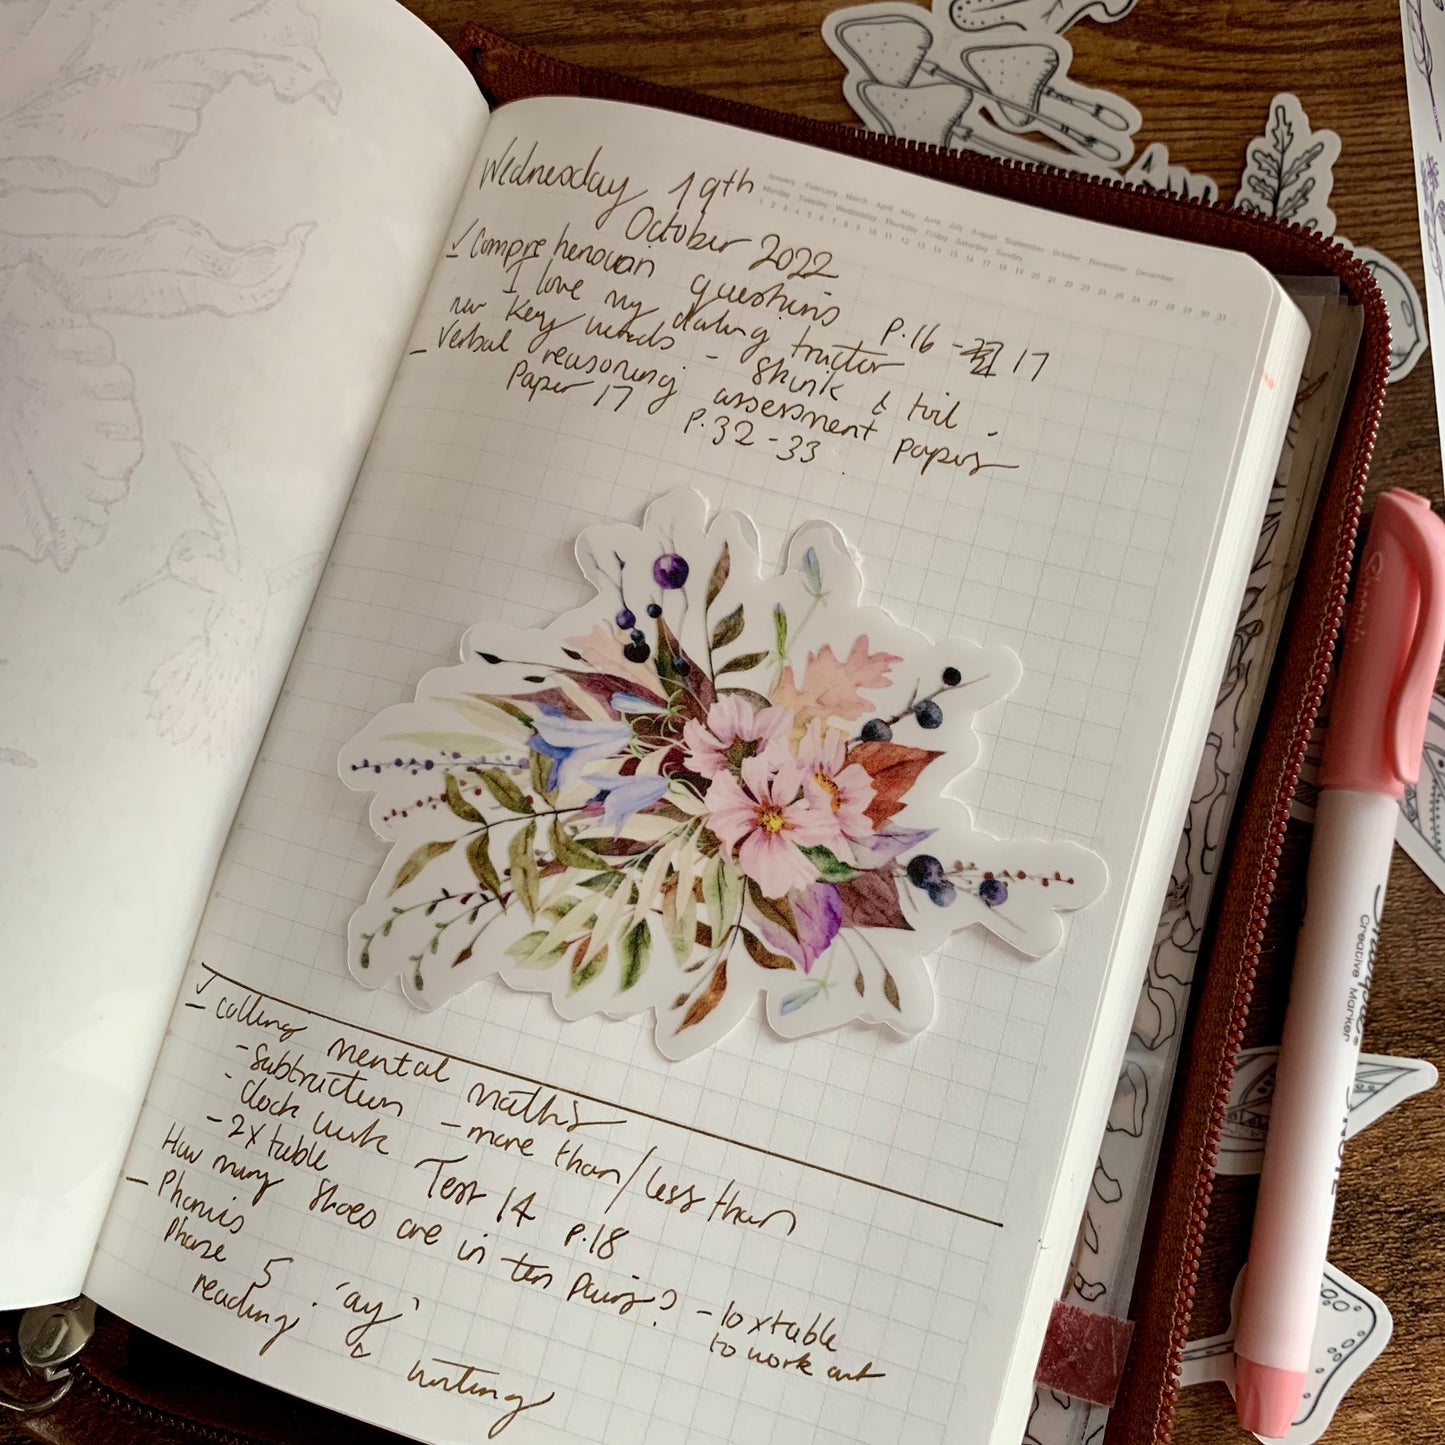 Wednesday 19th
October 2022
January February March April May June July August September October November December
Monday Tuesday Wednesday Thursday Friday Saturday Sunday
1 2 3 4 5 6 7 8 9 10 11 12 13 14 15 16 17 18 19 20 21 22 23 24 25 26 27 28 29 30 31
✓ – Comprehension questions p.16 - 17
I love my darling tractor
new key words - shink & toil -
– Verbal reasoning assessment papers
Paper 17 p.32 - 33.
✓ – Collins mental maths
- Subtraction - more than/less than
- clock work
- 2x table Test 14 p.18
How many shoes are in ten pairs? - 10 x table
to work out
– Phonics
Phase 5 'ay'
reading & writing
Sharpie
Creative Marker
Sharpie